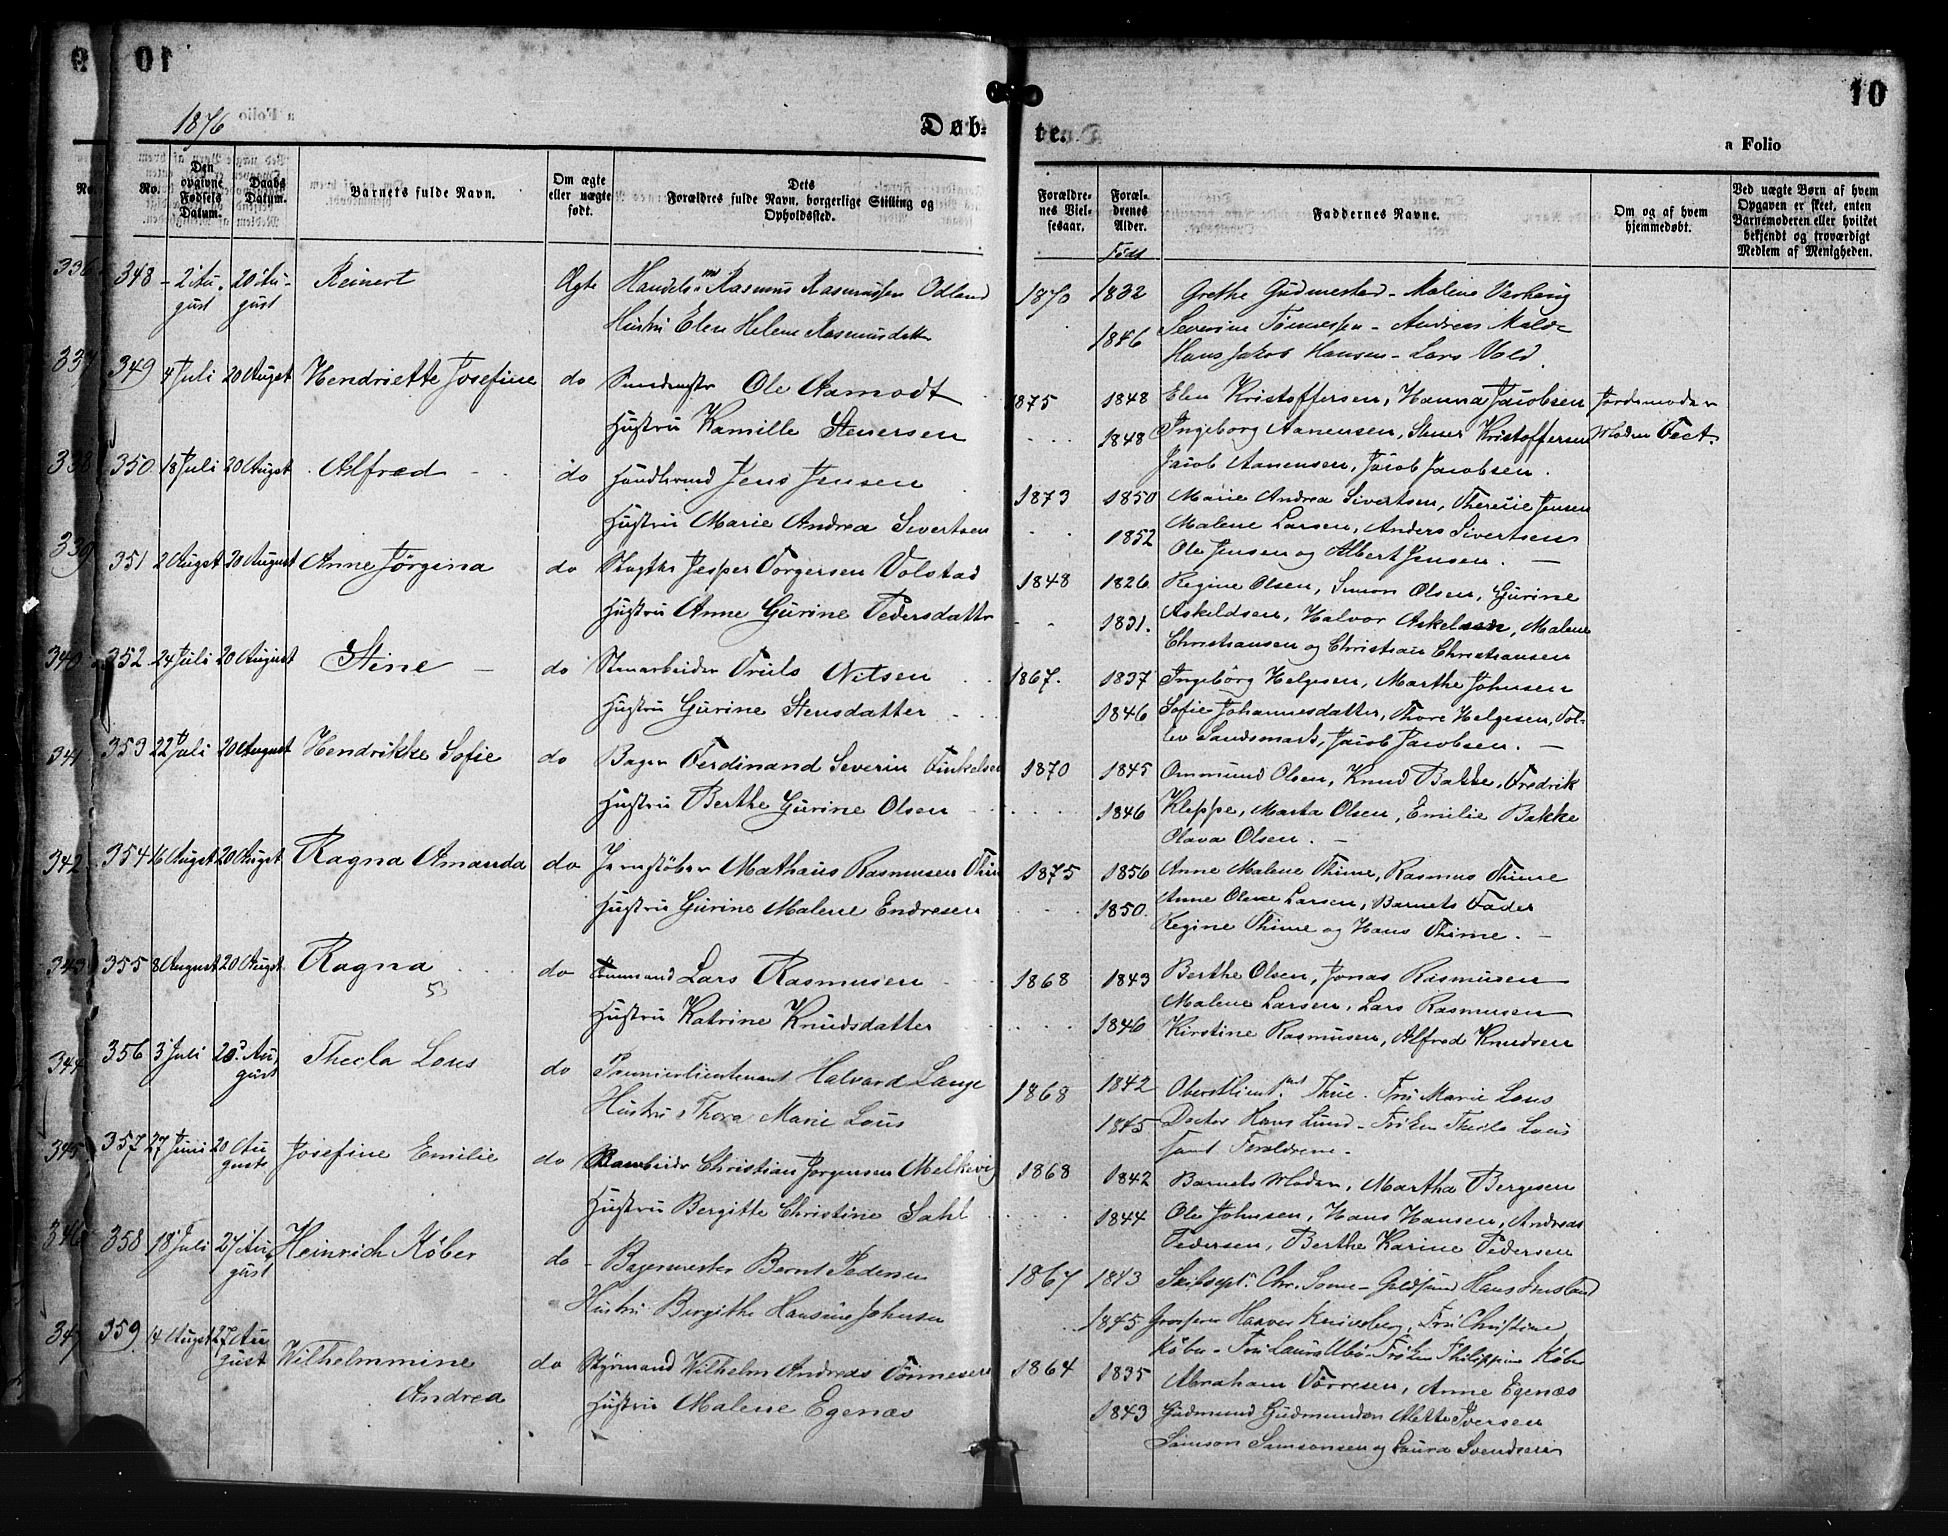 10
1876
Døb-
No.
Den opgivne Fødsels Datum.
Daabs Datum.
Barnets fulde Navn.
Om ægte eller uægte født.
Dets Forældres fulde Navn, borgerlige Stilling og Opholdssted.
336 348 2 Au- 20 Au- Reinert Ægte Rasmus Rasmussen Odland
gust gust Hustru Elen Helene Rasmusdatt
337 349 4 Juli 20 Augst Hendriette Josefine do Ole Aamodt
Hustru Kamille Stenersen
338 350 18 Juli 20 Augst Alfred do Jens Jensen
Hustru Marie Andrea Sivertsen
339 351 2 Augst 20 August Anne Jörgina do Jesper Torgersen Volstad
Hustru Anne Gurine Pedersdattr
340 352 24 Juli 20 August Stine do Stenarbeider Truls Nilsen
Hustru Gurine Stensdatter
341 353 22 Juli 20 August Hendrikke Sofie do Bager Ferdinand Severin Finkelsen
Hustru Berthe Gurine Olsen
342 354 16 Augst 20 Augst Ragna Amanda do Jernstøber Mathæus Rasmusen Thime
Hustru Gurine Malene Endresen
343 355 8 August 20 Augst Ragna do Lars Rasmusen
Hustru Katrine Knudsdatter
344 356 3 Juli 20 Au- Thecla Lous do Premierlieutenant Halvard Lange
gust Hustru Thora Marie Lous
345 357 27 Juni 20 Au Josefine Emilie do Christian Jørgensen Melkevig
gust Hustru Bergitte Christine Dahl
346 358 18 Juli 27 Au- Heinrich Køber do Bagermester Bernt Pedersen
gust Hustru Bergithe Hansine Johnsen
347 359 14 Augst 27 Au Wilhelmmine do Styrmand Wilhelm Andreas Tönnesen
gust Andrea Hustru Malene Egenæs
te.
10
a Folio
Forældrenes Vielsesaar.
Forældrenes Alder.
Faddernes Navne.
Om og af hvem hjemmedøbt.
Ved uægte Børn af hvem Opgaven er skeet, enten Barnemoderen eller hvilket bekjendt og troværdigt Medlem af Menigheden.
Födt
1870 1832 Grethe Gudmestad - Malene Varhaug
1846 Severine Tönnessen - Andreas Malde
Hans Jakob Hansen - Lars Vold.
1875 1848 Elen Kristoffersen, Hanna Jacobsen Jordemoder
1848 Ingeborg Aanensen, Stener Kristoffersen
Jacob Aanensen, Jacob Jacobsen.
1873 1850 Marie Andrea Sivertsen, Theresie Jensen
1852 Malene Larsen, Anders Sivertsen
Ole Jensen og Albert Jensen.
1848 1826 Regine Olsen, Simon Olsen, Gurine
1831. Askeldsen, Halvor Askeldsen, Malene
Christiansen og Christian Christiansen
1867. 1837 Ingeborg Helgesen, Marthe Johnsen
1846 Sofie Johannesdatter, Thore Helgesen, Tol-
lev Sandsmark, Jacob Jacobsen.
1870 1845 Ommund Olsen, Knud Bakke, Fredrik
1846 Kleppe, Marta Olsen, Emilie Bakke
Olava Olsen.
1875 1856 Anne Malene Thime, Rasmus Thime
1850. Anne Olene Larsen, Barnets Fader
Regine Thime og Hans Thime.
1868 1843 Berthe Olsen, Jonas Rasmusen
Malene Larsen, Lars Rasmusen
1846 Kirstine Rasmusen, Alfred Knudsen
1868 1842 Oberstlieut. Thue. Fru Marie Lous
1845 Doctor Hans Lund - Frøken Thecla Lous
samt Forældrene.
1868 1842 Barnets Moder, Martha Bergesen
1844 Ole Johnsen, Hans Hansen, Andreas
Pedersen, Berthe Karine Pedersen
1867 1843 Chr. Somme - Hans
1845 Fru Christine
Køber - Fru Laura - Frøken Philippine Køber
1864 1835 Abraham Törresen, Anne Egenæs
1843 Gudmund Gudmundsen Mette Iversen
Samson Samsonsen og Laura Svendsen